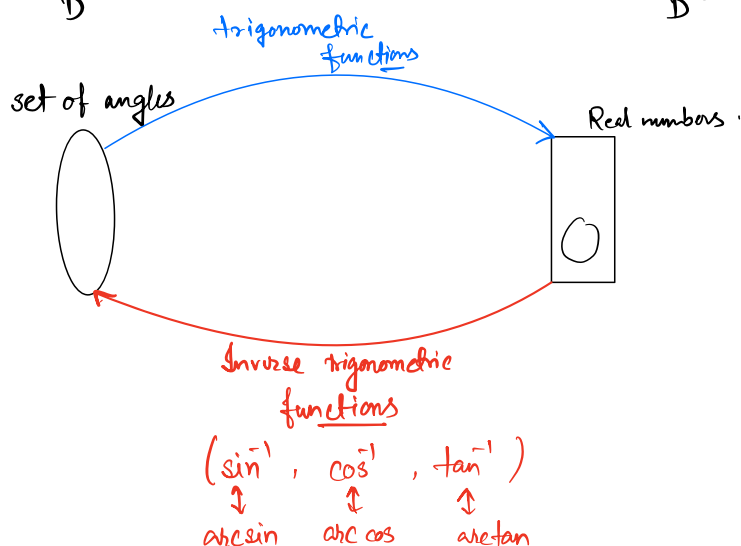 D D
trigonometric
functions
set of angles
Real numbers
Inverse trigonometric
functions
(sin⁻¹, cos⁻¹, tan⁻¹)
arcsin arc cos arctan